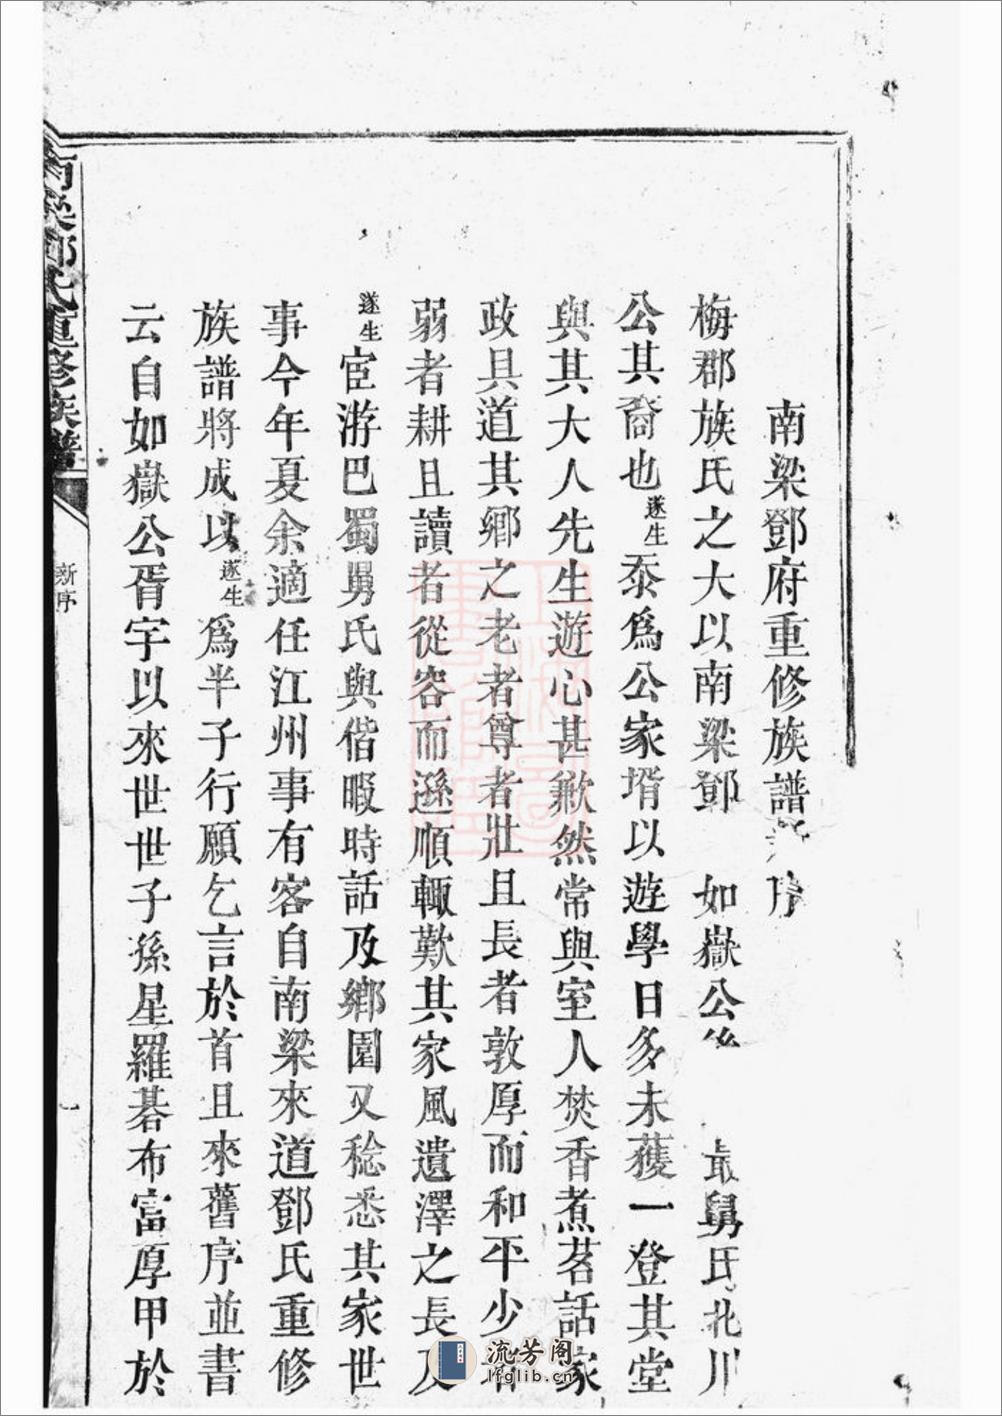 南梁鄧府重修族譜序
梅郡族氏之大以南梁鄧　如嶽公後　最舅氏北川
公其裔也遂生忝爲公家壻以遊學日多未獲一登其堂
與其大人先生遊心甚歉然常與室人焚香煮茗話家
政具道其鄉之老者尊者壯且長者敦厚而和平少者
弱者耕且讀者從容而遜順輙歎其家風遺澤之長及
遂生宦游巴蜀舅氏與偕暇時話及鄉園又稔悉其家世
事今年夏余適任江州事有客自南梁來道鄧氏重修
族譜將成以遂生爲半子行願乞言於首且來舊序並書
云自如嶽公胥宇以來世世子孫星羅碁布富厚甲於
南梁鄧氏重修族譜
新序
一
流芳阁
lfglib.com